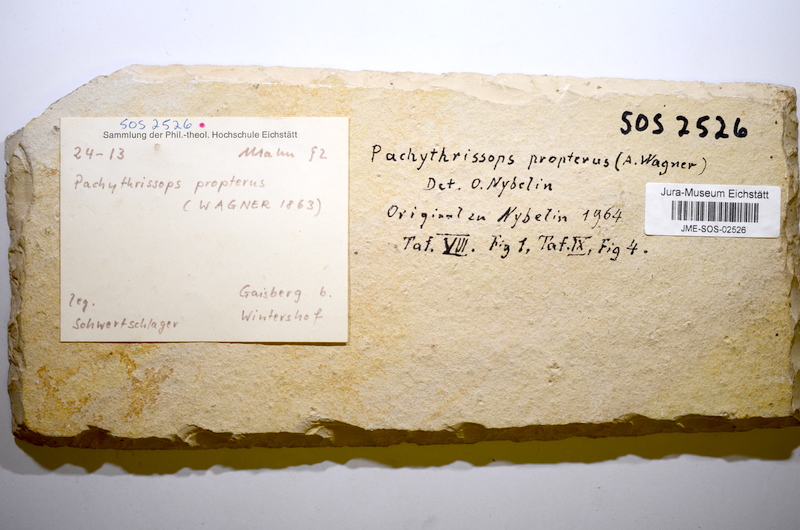 SOS 2526
Sammlung der Phil.-theol. Hochschule Eichstätt
24-13
Malm ζ2
Pachythrissops propterus
(WAGNER 1863)
leg.
Schwertschlager
Gaisberg b.
Wintershof
SOS 2526
Pachythrissops propterus (A. Wagner)
Det. O. Nybelin
Original zu Nybelin 1964
Taf. VIII. Fig 1, Taf. IX, Fig 4.
Jura-Museum Eichstätt
JME-SOS-02526